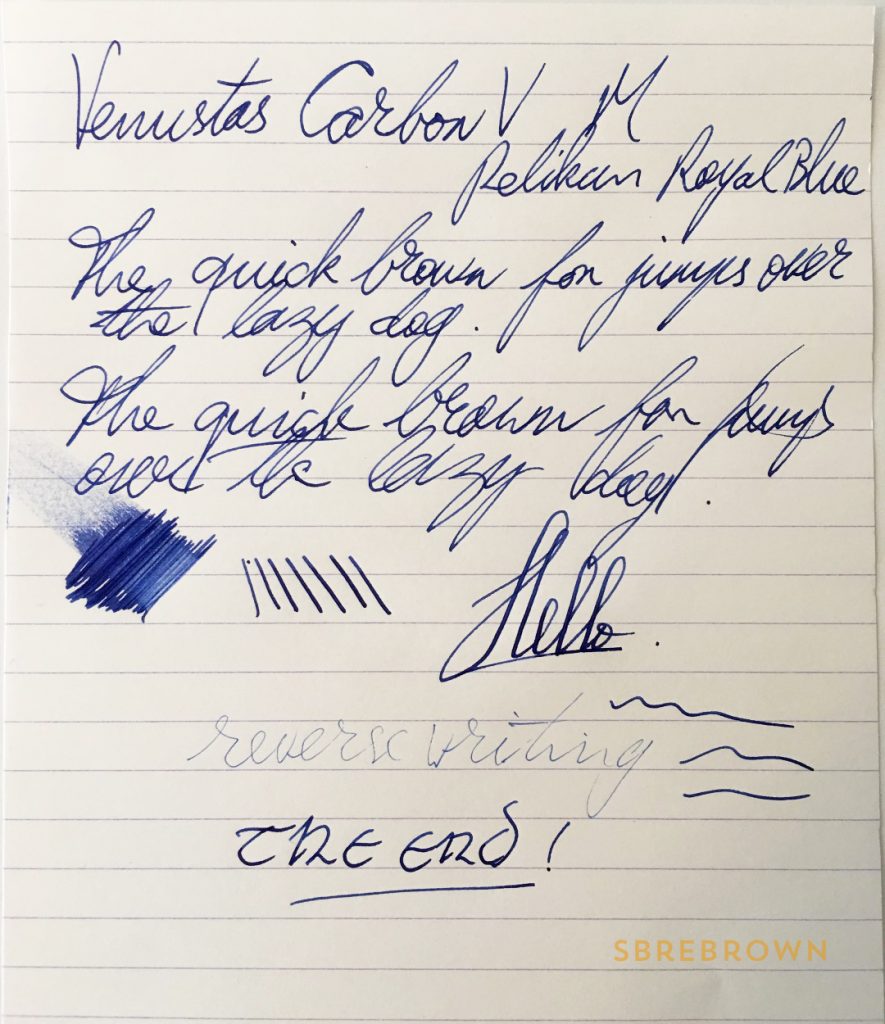 Venustas Carbon V M
Pelikan Royal Blue
The quick brown fox jumps over
the lazy dog.
The quick brown fox jumps
over the lazy dog.
Hello.
reverse writing
THE END!
SBREBROWN